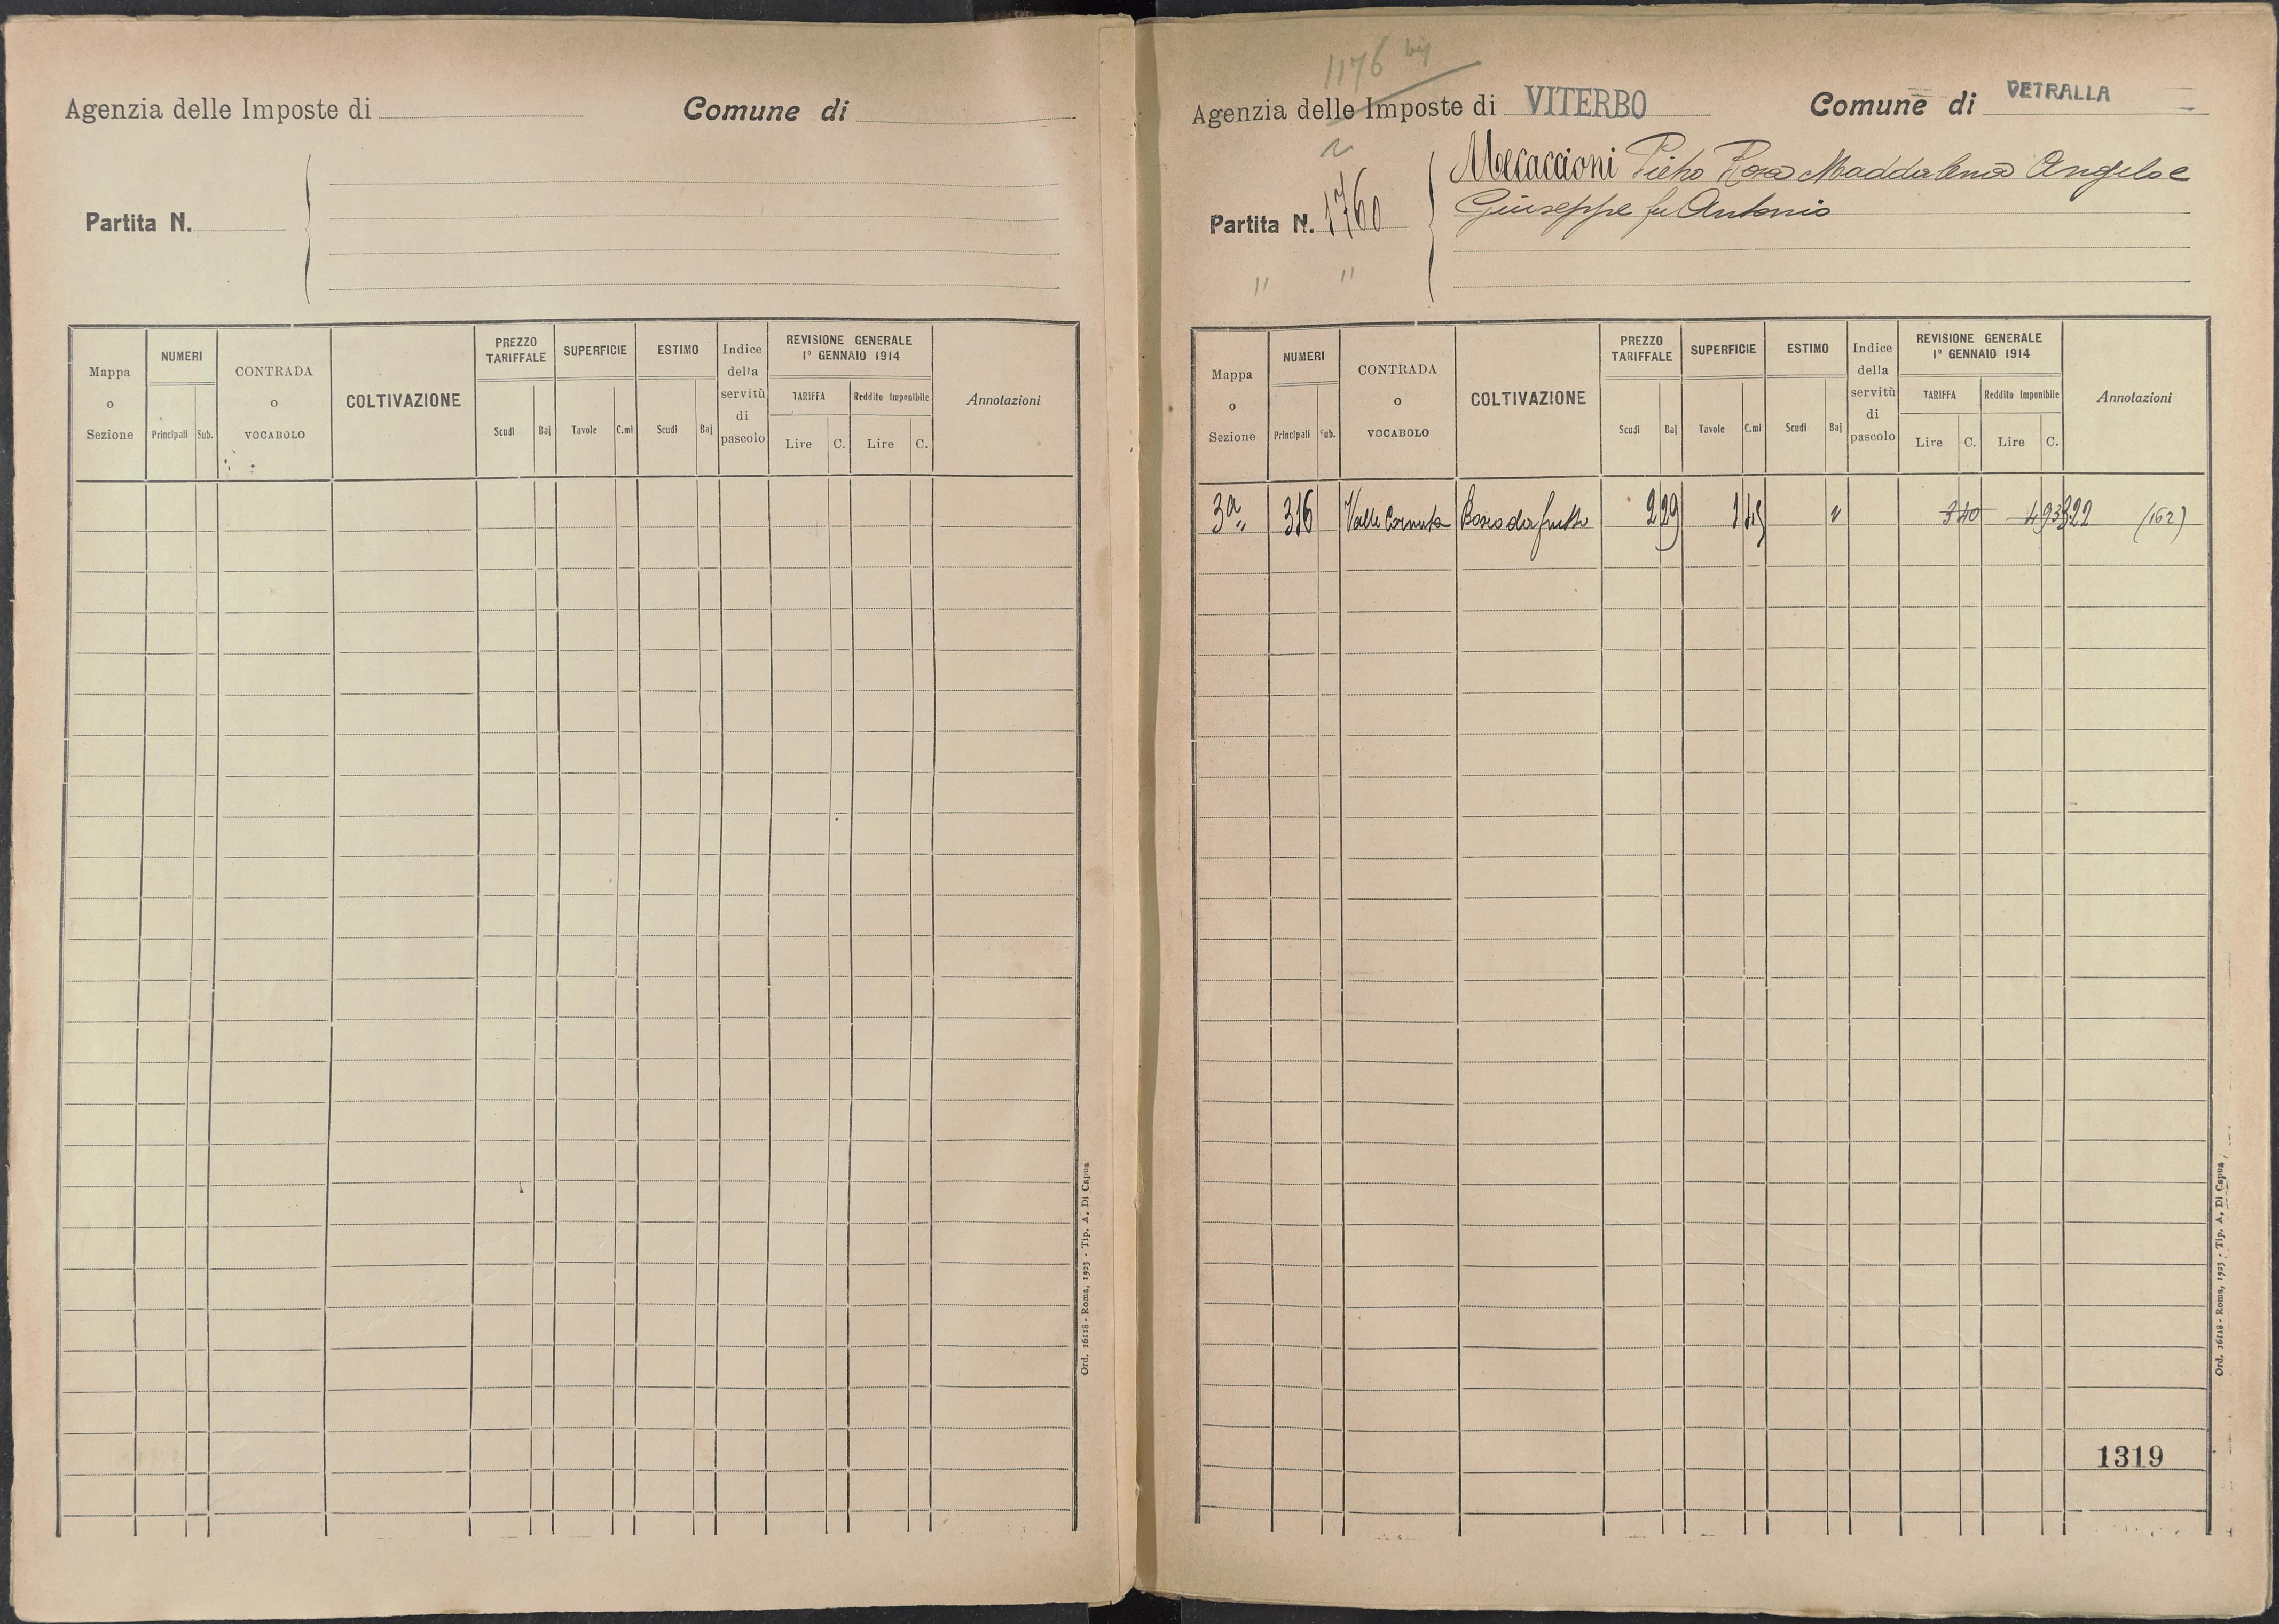 Agenzia delle Imposte di
Comune di
Partita N.
Mappa o Sezione
NUMERI
Principali
Sub.
CONTRADA o VOCABOLO
COLTIVAZIONE
PREZZO TARIFFALE
Scudi
Baj
SUPERFICIE
Tavole
C.mi
ESTIMO
Scudi
Baj
Indice della servitù di pascolo
REVISIONE GENERALE
1° GENNAIO 1914
TARIFFA
Reddito Imponibile
Lire
C.
Lire
C.
Annotazioni
Ord. 16118 - Roma, 1923 - Tip. A. Di Capua
1176 bis
Agenzia delle Imposte di VITERBO
Comune di VETRALLA
Partita N. 1760
Meccaccioni Pietro Rosa Maddalena Angelo e
Giuseppe fu Antonio
" "
Mappa o Sezione
NUMERI
Principali
Sub.
CONTRADA o VOCABOLO
COLTIVAZIONE
PREZZO TARIFFALE
Scudi
Baj
SUPERFICIE
Tavole
C.mi
ESTIMO
Scudi
Baj
Indice della servitù di pascolo
REVISIONE GENERALE
1° GENNAIO 1914
TARIFFA
Reddito Imponibile
Lire
C.
Lire
C.
Annotazioni
3a 316 Valle Cornuta Bosco da frutto 2 29 3 40 4 93 (162)
1319
Ord. 16118 - Roma, 1923 - Tip. A. Di Capua